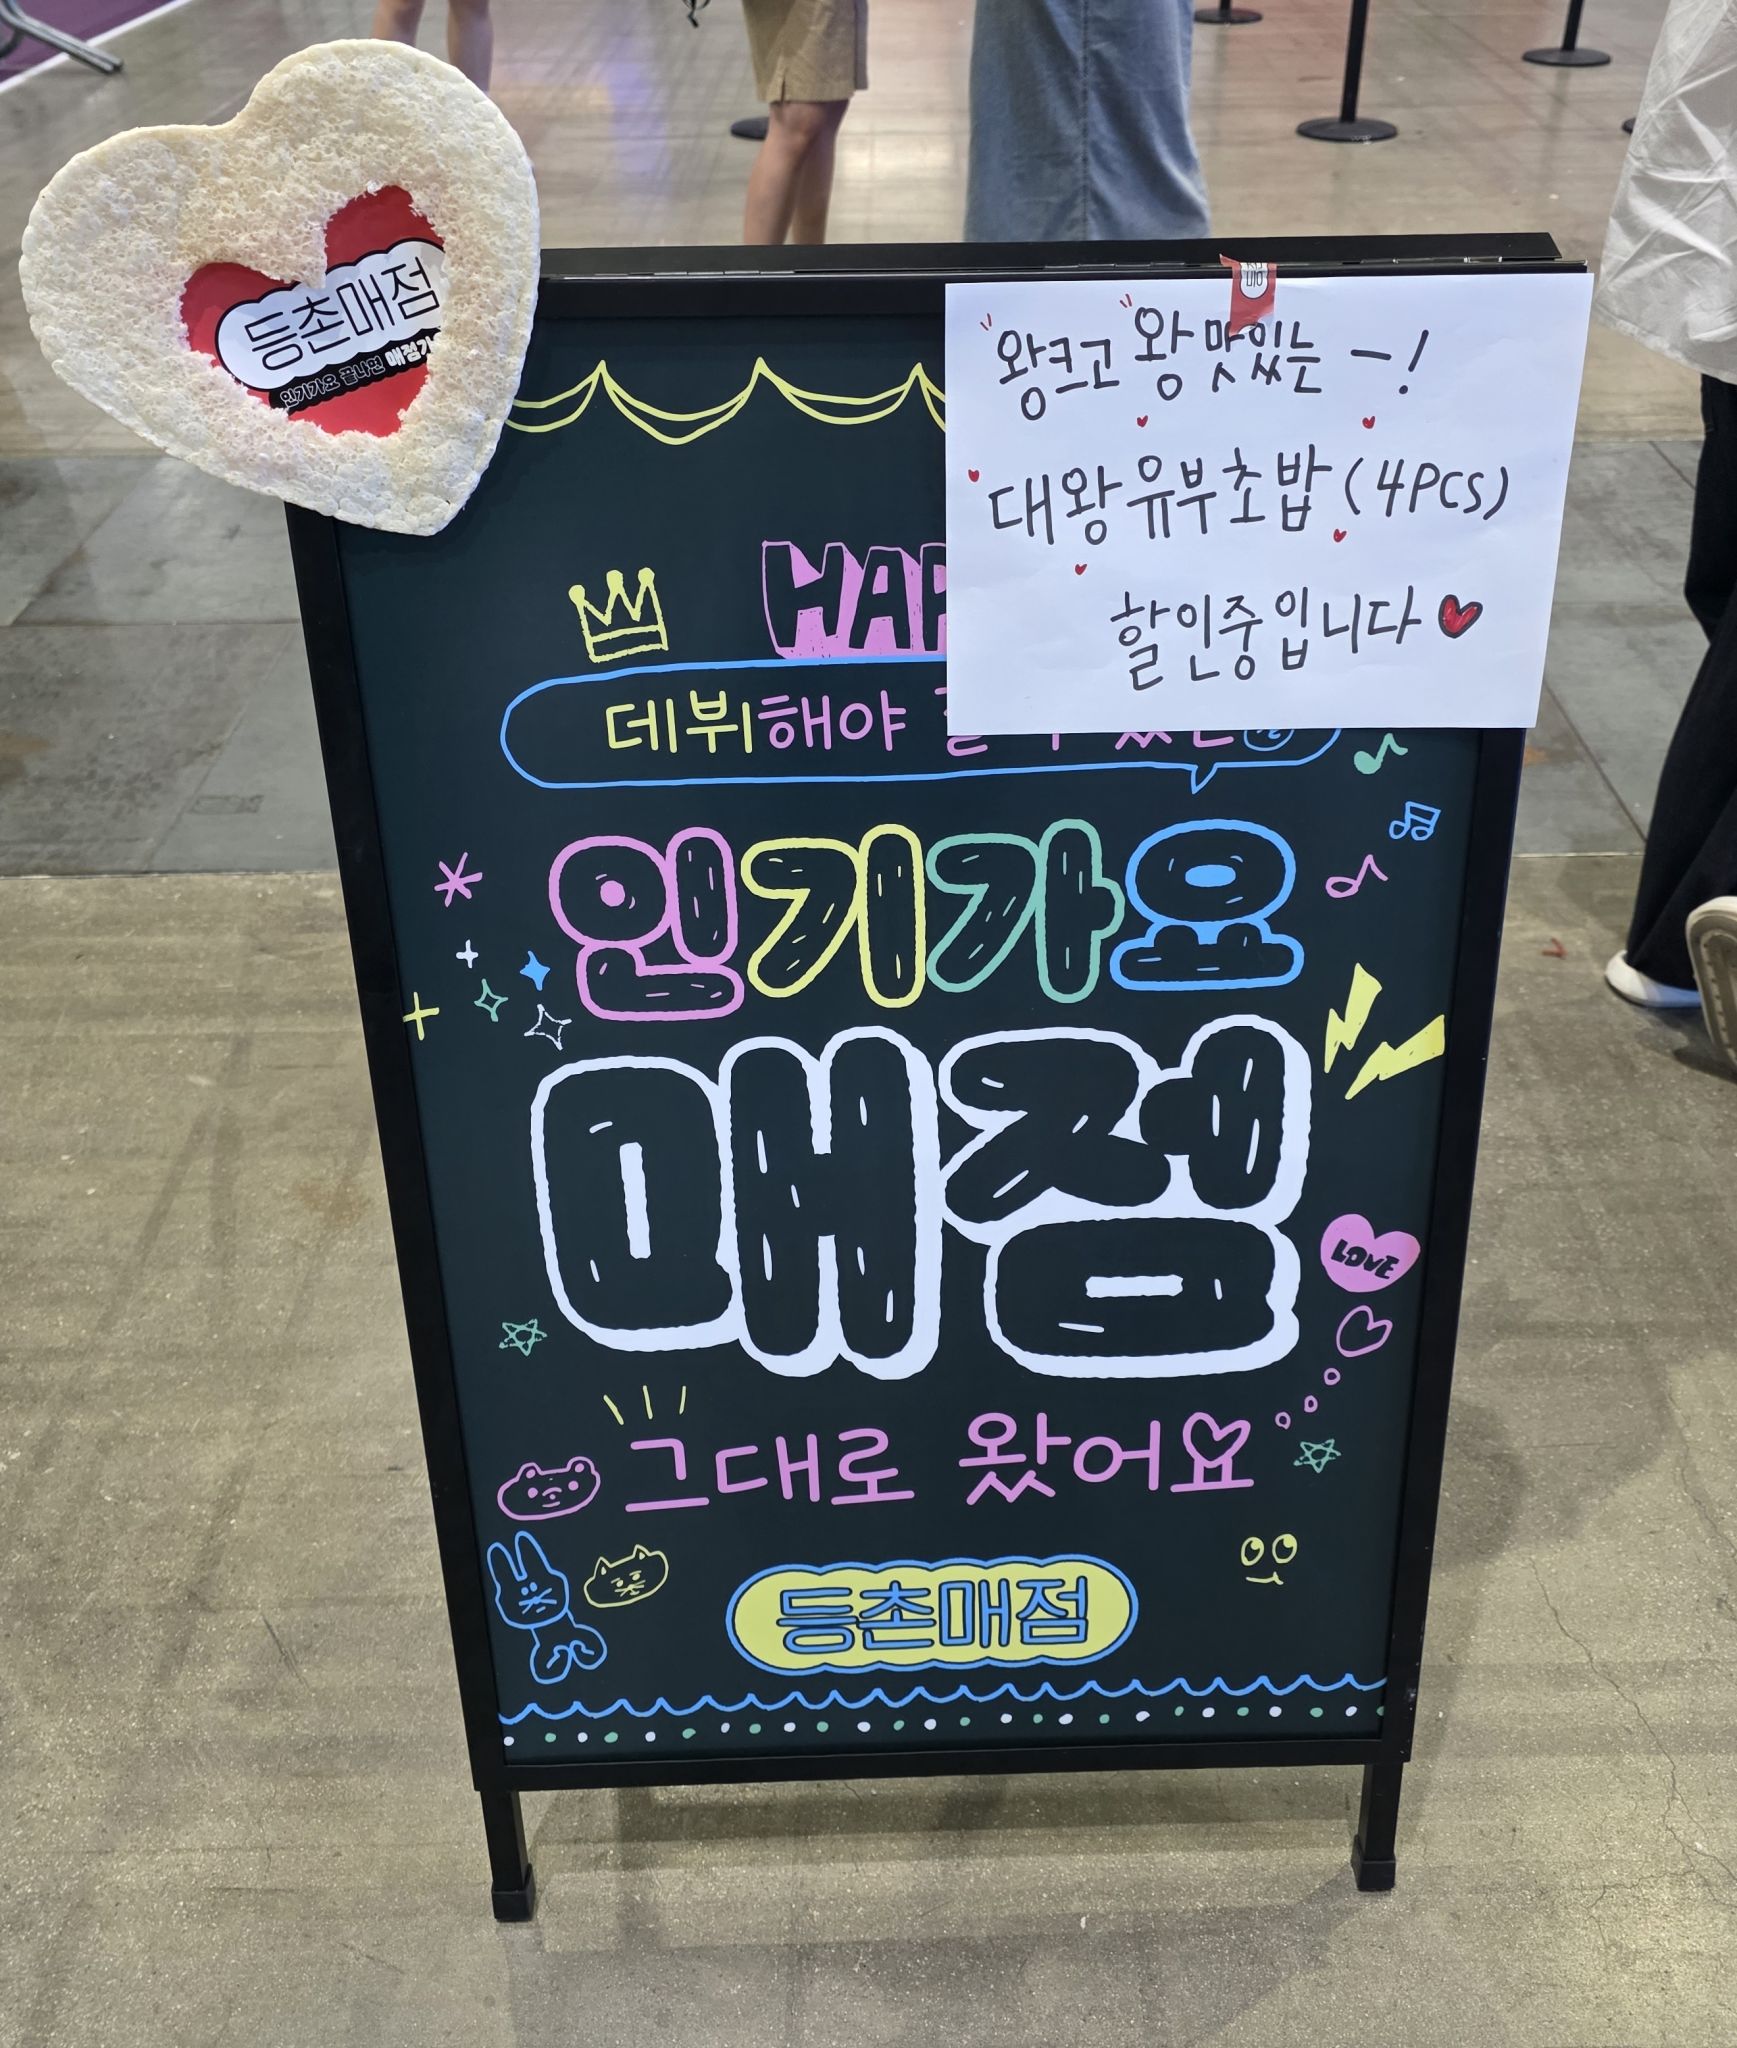 등촌매점
인기가요 끝나면 매점가
왕크고 왕 맛있는 -!
대왕유부초밥 (4PCS)
할인중입니다
HAP
데뷔해야
인기가요
매점
LOVE
그대로 왔어요
등촌매점